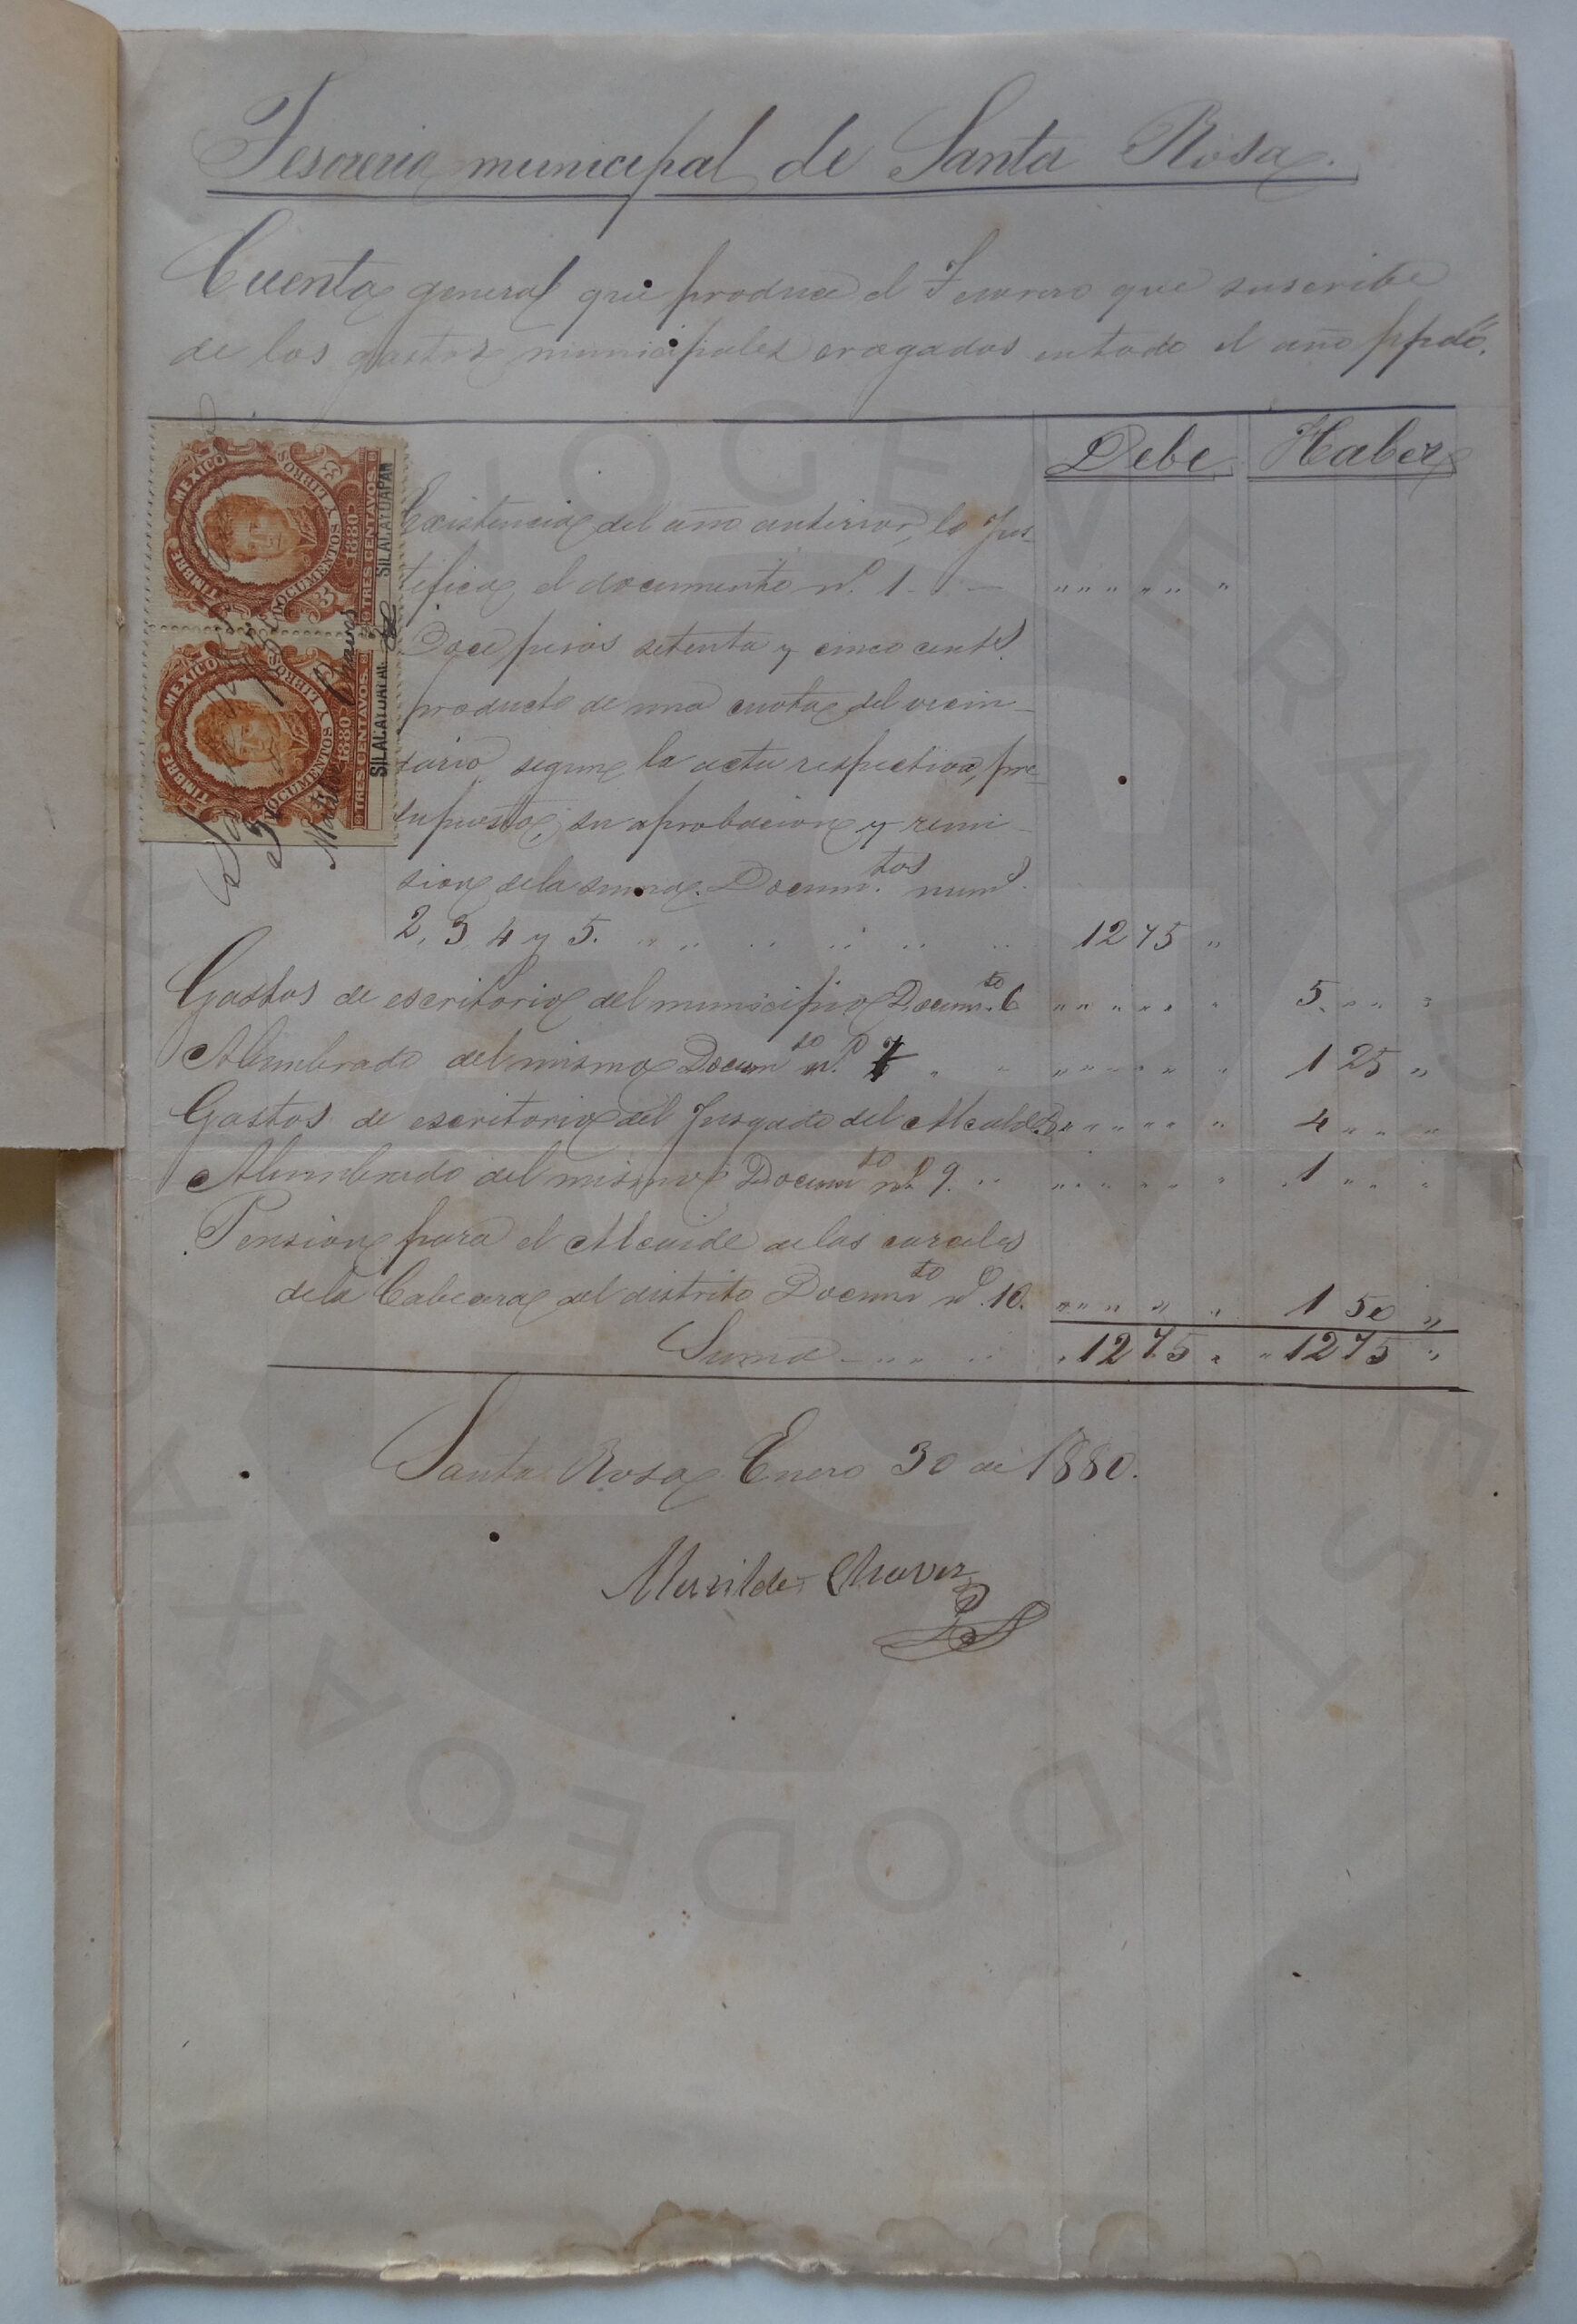 Tesoreria municipal de Santa Rosa.
Cuenta general que produce el Tesorero que suscribe
de los gastos municipales erogados en todo el año ppdo.
Debe Haber
Existencia del año anterior, lo jus-
tifica el documento nº. 1.
Doce pesos setenta y cinco cents.
producto de una cuota del vecin-
dario, segun la acta respectiva, pre-
supuesto, su aprobacion y remi-
sion de la suma. Documtos. nums.
2, 3, 4 y 5. 12 75 "
Gastos de escritorio del municipio Documto. 6 5. " " "
Alumbrado del mismo Documto nº. 7 1 25 "
Gastos de escritorio del Jusgado del Alcalde 4 " " "
Alumbrado del mismo Documto nº. 9. 1 " " "
Pension para el Alcaide de las carceles
de la Cabecera del distrito Documto nº. 10. 1 50 "
Suma 12 75 " 12 75 "
Santa Rosa Enero 30 de 1880.
Chavez
MEXICO
TIMBRE
DOCUMENTOS Y LIBROS
1880
TRES CENTAVOS.
SILACAYOAPAN
MEXICO
TIMBRE
DOCUMENTOS Y LIBROS
1880
TRES CENTAVOS.
SILACAYOAPAN
ARCHIVO GENERAL DEL ESTADO DE OAXACA